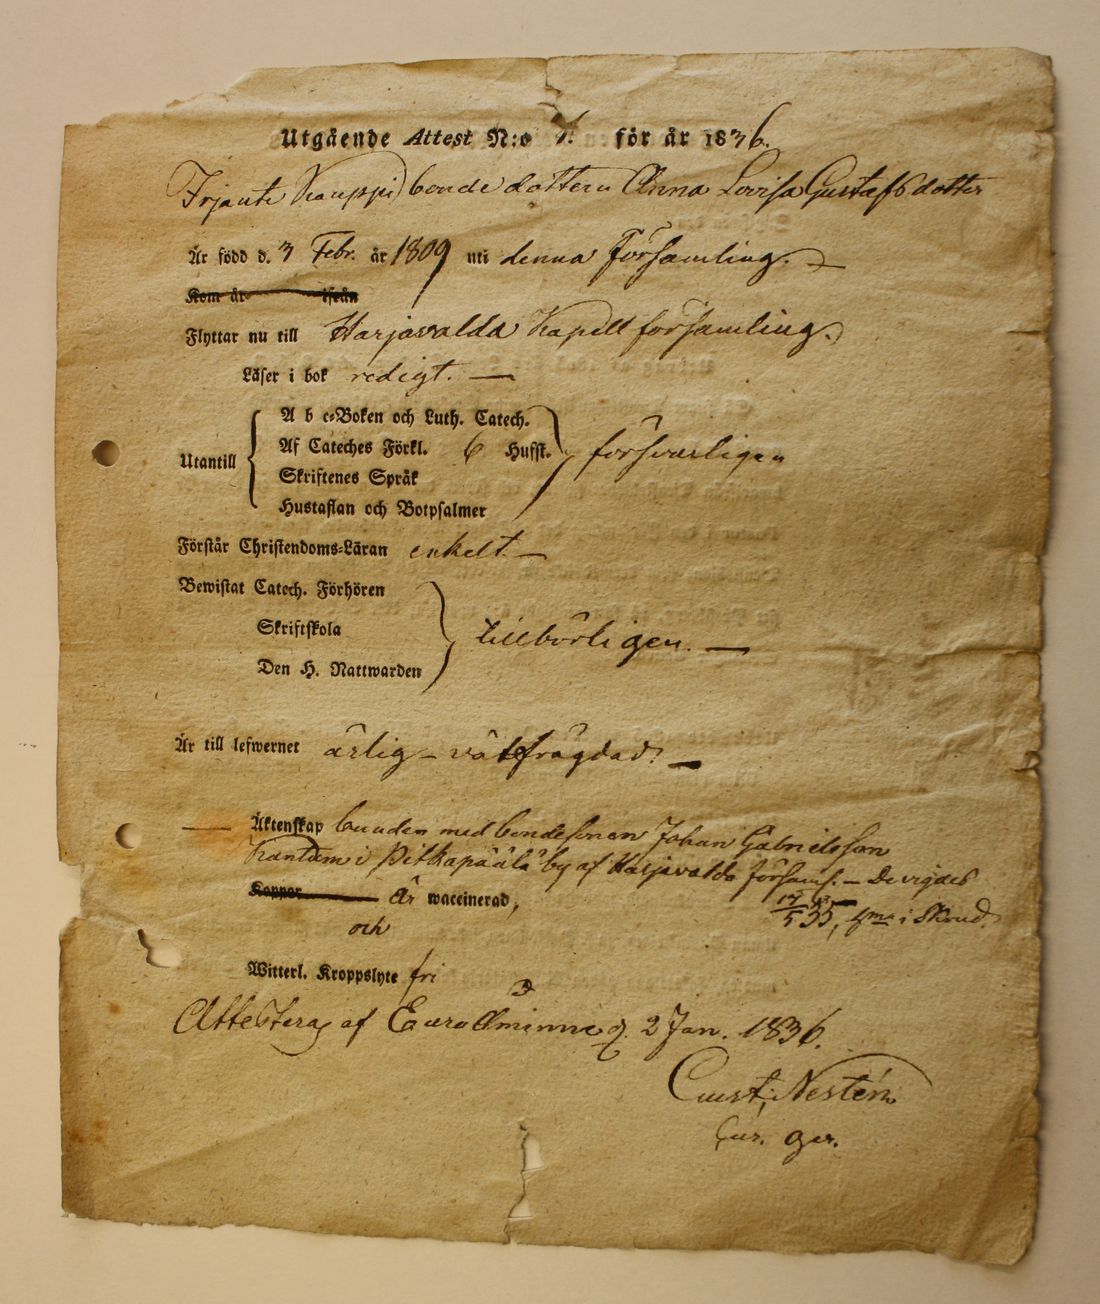 Utgående Attest N:o 1. för år 1836.
Irjante Kauppi bonde dottern Anna Lovisa Gustafsdotter
Är född d. 3 Febr. år 1809 uti denna Församling.
Kom år ifrån
Flyttar nu till Harjavalda Kapell församling.
Läser i bok redigt.
A b c-Boken och Luth. Catech.
Af Cateches Förkl. 6 Hufst. försvarligen
Utantill
Skriftenes Språk
Hustaflan och Botpsalmer
Förstår Christendoms-Läran enkelt.
Bewistat Catech. Förhören
Skriftskola tillbörligen.
Den H. Nattwarden
Är till lefwernet ärlig - välfrägdad.
Äktenskap bunden med bondesonen Johan Gabrielsson
i Pitkapäälä by af Harjavalda församl. - De vigdes
Koppor Är waccinerad,
17/5 35,
och
Witterl. Kroppslyte fri
Attesteras af Euraåminne d. 2 Jan. 1836.
Gust. Nestén.